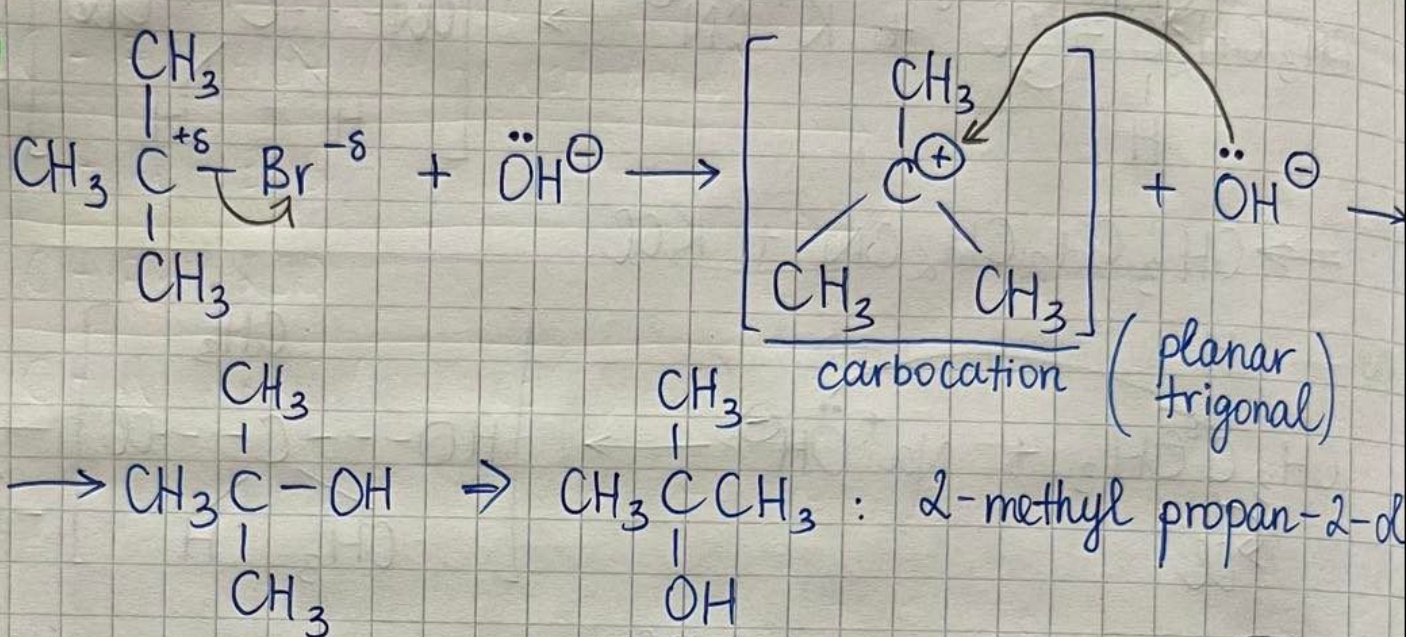 CH₃ CH₃
CH₃ C⁺ᵟ – Br⁻ᵟ + ÖH⊖ → [ C⊕ ] + ÖH⊖ →
CH₃ CH₃ CH₃
carbocation (planar trigonal)
CH₃ CH₃
→ CH₃ C – OH ⇒ CH₃ C CH₃ : 2-methyl propan-2-ol
CH₃ OH